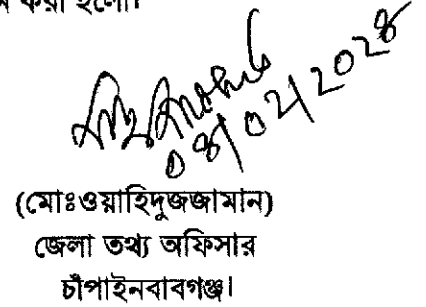 ন করা হলো।
০৪/০২/২০২৪
(মোঃওয়াহিদুজজামান)
জেলা তথ্য অফিসার
চাঁপাইনবাবগঞ্জ।